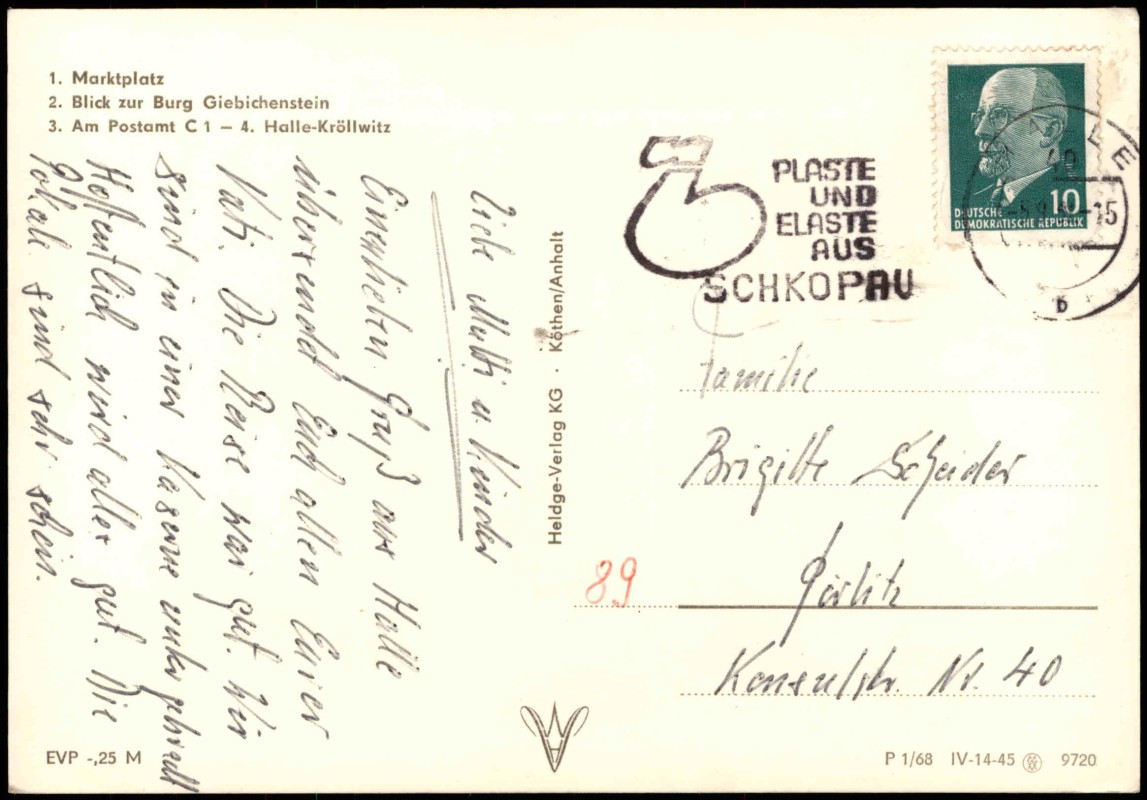 1. Marktplatz
2. Blick zur Burg Giebichenstein
3. Am Postamt C 1 – 4. Halle-Kröllwitz
Liebe Mutti u. Kinder
Einen lieben Gruß aus Halle
übersendet Euch allen Euer
Vati. Die Reise war gut. Wir
sind in einer Kaserne unter gebracht
Hoffentlich wird alles gut. Die
Lokale sind sehr schön.
Heldge-Verlag KG · Köthen/Anhalt
PLASTE
UND
ELASTE
AUS
SCHKOPAU
DEUTSCHE
DEMOKRATISCHE REPUBLIK
10
40
15
b
Familie
Brigitte
Görlitz
Konsulstr. Nr. 40
89
EVP -,25 M
P 1/68 IV-14-45 9720